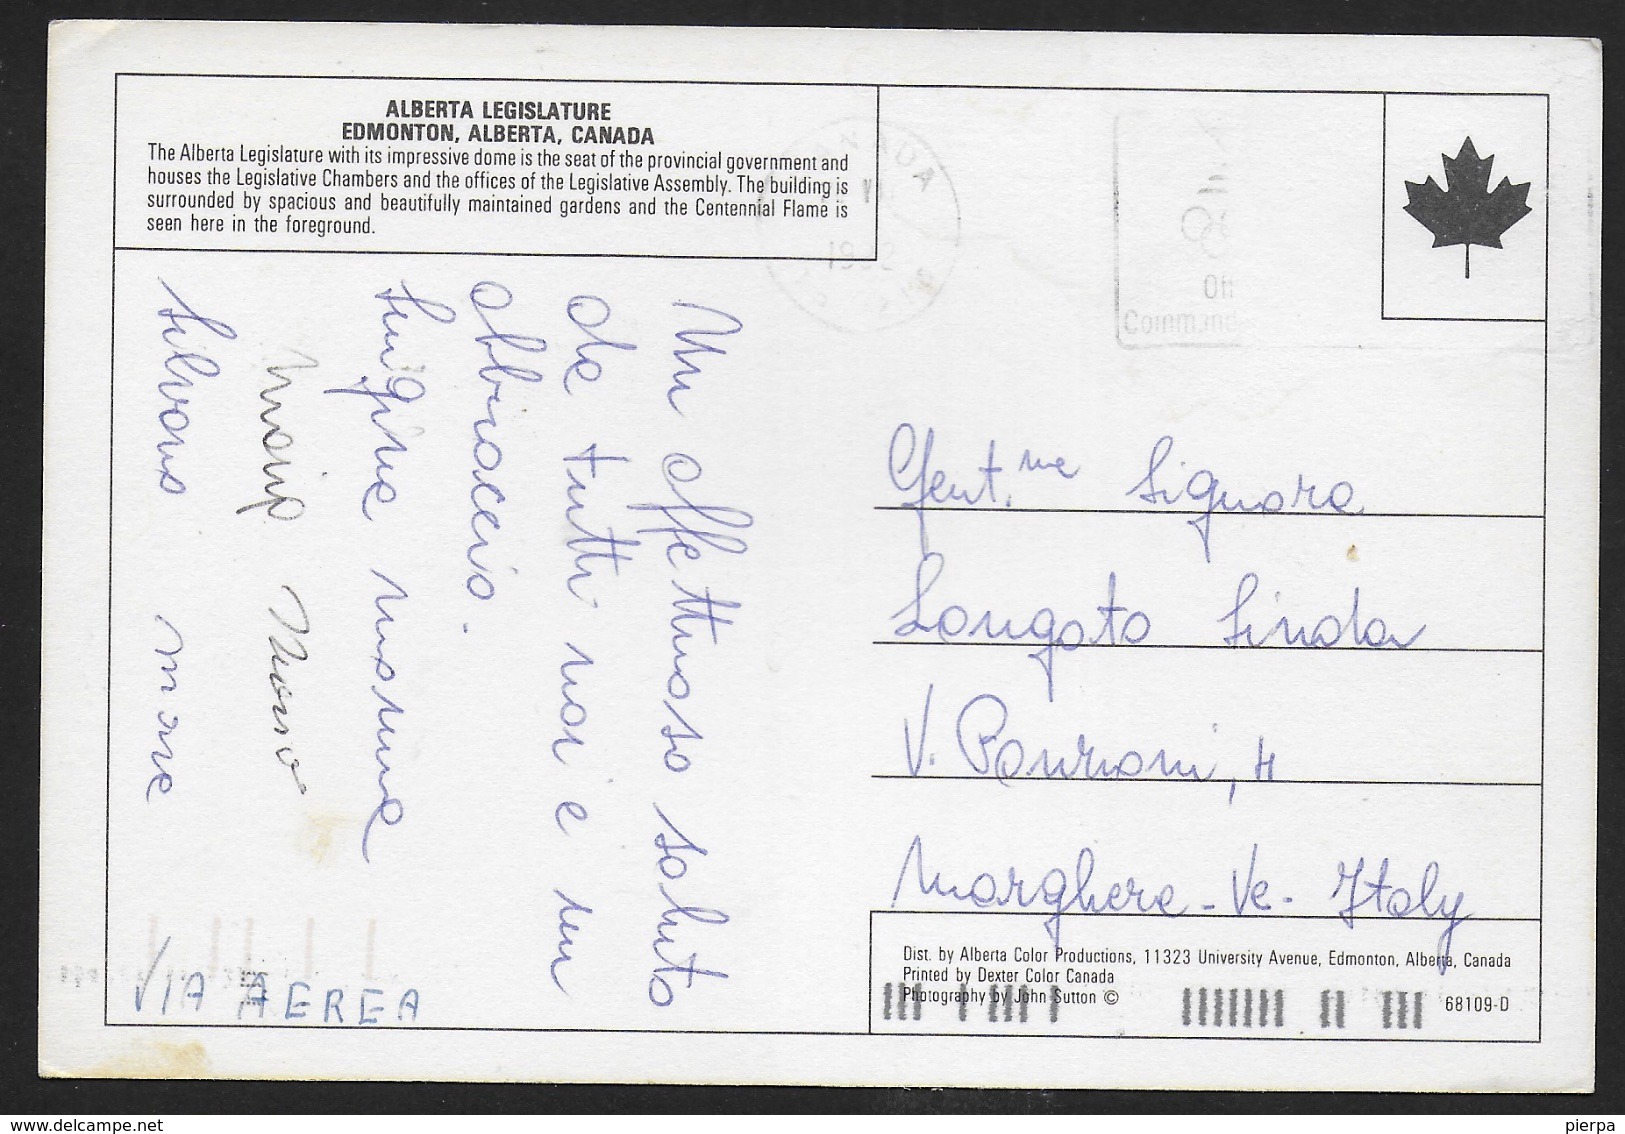 ALBERTA LEGISLATURE
EDMONTON, ALBERTA, CANADA
The Alberta Legislature with its impressive dome is the seat of the provincial government and
houses the Legislative Chambers and the offices of the Legislative Assembly. The building is
surrounded by spacious and beautifully maintained gardens and the Centennial Flame is
seen here in the foreground.
Un affettuoso saluto
da tutti noi e un
abbraccio.
Luigina mamma
Silvana
VIA AEREA
CANADA
Gent.ma Signora
Longato Linda
V. Ponzoni, 4
Marghera - Ve - Italy
Dist. by Alberta Color Productions, 11323 University Avenue, Edmonton, Alberta, Canada
Printed by Dexter Color Canada
Photography by John Sutton ©
68109-D
pierpa
delcampe.net